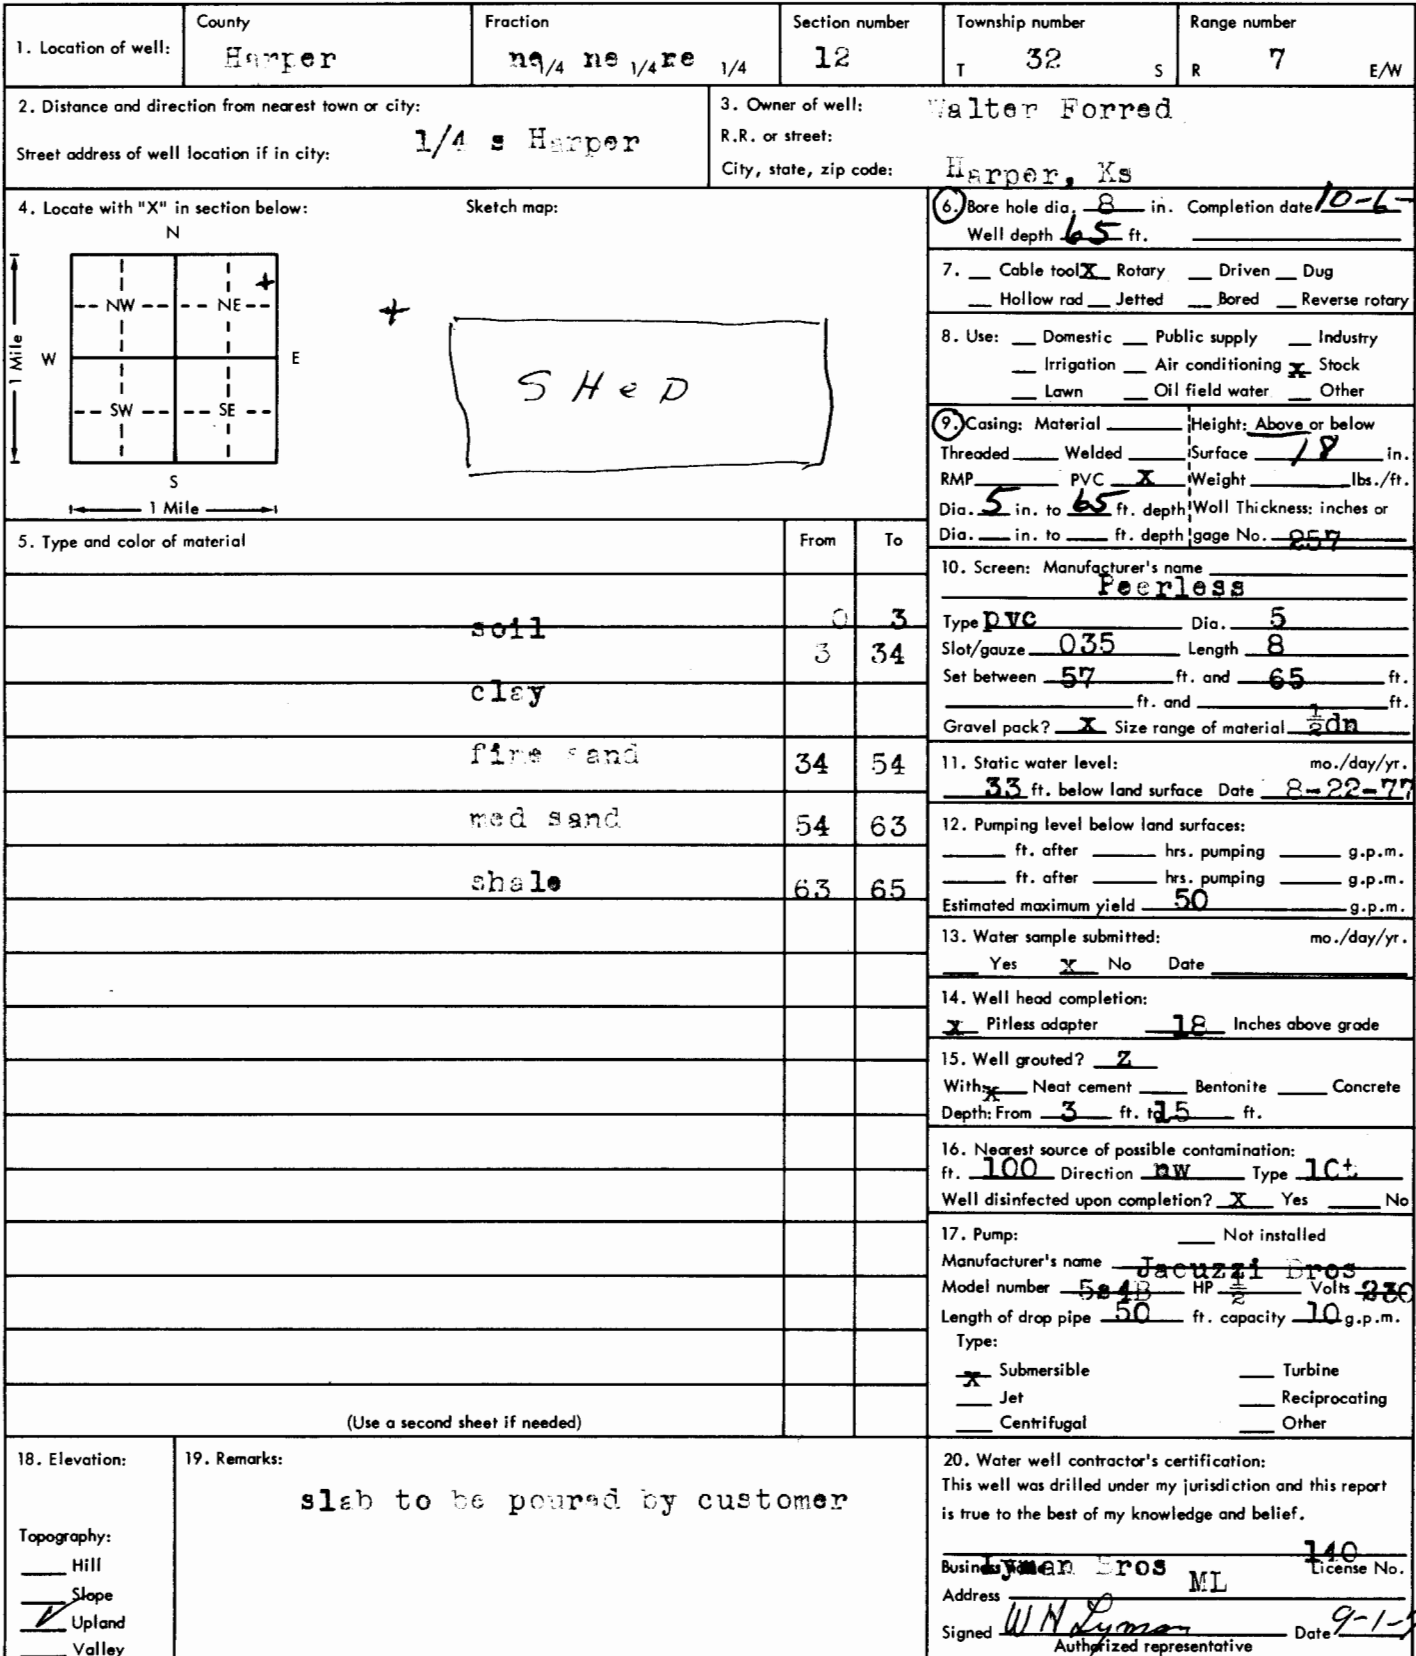 1. Location of well:
County
Harper
Fraction
ne 1/4 ne 1/4 ne 1/4
Section number
12
Township number
T 32 S
Range number
R 7 E/W
2. Distance and direction from nearest town or city:
1/4 s Harper
Street address of well location if in city:
3. Owner of well: Walter Forred
R.R. or street:
City, state, zip code: Harper, Ks
4. Locate with "X" in section below:
Sketch map:
N
NW NE
W E
SW SE
S
1 Mile
1 Mile
SHeD
5. Type and color of material From To
soil 0 3
clay 3 34
fine sand 34 54
med sand 54 63
shale 63 65
(Use a second sheet if needed)
6. Bore hole dia. 8 in. Completion date 10-6-
Well depth 65 ft.
7. Cable tool X Rotary Driven Dug
Hollow rod Jetted Bored Reverse rotary
8. Use: Domestic Public supply Industry
Irrigation Air conditioning X Stock
Lawn Oil field water Other
9. Casing: Material Height: Above or below
Threaded Welded Surface 18 in.
RMP PVC X Weight lbs./ft.
Dia. 5 in. to 65 ft. depth Wall Thickness: inches or
Dia. in. to ft. depth gage No. 257
10. Screen: Manufacturer's name
Peerless
Type pvc Dia. 5
Slot/gauze 035 Length 8
Set between 57 ft. and 65 ft.
ft. and ft.
Gravel pack? X Size range of material 1/2dn
11. Static water level: mo./day/yr.
33 ft. below land surface Date 8-22-77
12. Pumping level below land surfaces:
ft. after hrs. pumping g.p.m.
ft. after hrs. pumping g.p.m.
Estimated maximum yield 50 g.p.m.
13. Water sample submitted: mo./day/yr.
Yes X No Date
14. Well head completion:
X Pitless adapter 18 Inches above grade
15. Well grouted? Z
With: x Neat cement Bentonite Concrete
Depth: From 3 ft. to 15 ft.
16. Nearest source of possible contamination:
ft. 100 Direction nw Type lCt
Well disinfected upon completion? X Yes No
17. Pump: Not installed
Manufacturer's name Jacuzzi Bros
Model number 5s4B HP 1/2 Volts 230
Length of drop pipe 50 ft. capacity 10 g.p.m.
Type:
X Submersible Turbine
Jet Reciprocating
Centrifugal Other
18. Elevation:
Topography:
Hill
Slope
Upland
Valley
19. Remarks:
slab to be poured by customer
20. Water well contractor's certification:
This well was drilled under my jurisdiction and this report
is true to the best of my knowledge and belief.
Lyman Bros 140
Business name License No.
Address ML
Signed W N Lyman Date 9-1-
Authorized representative